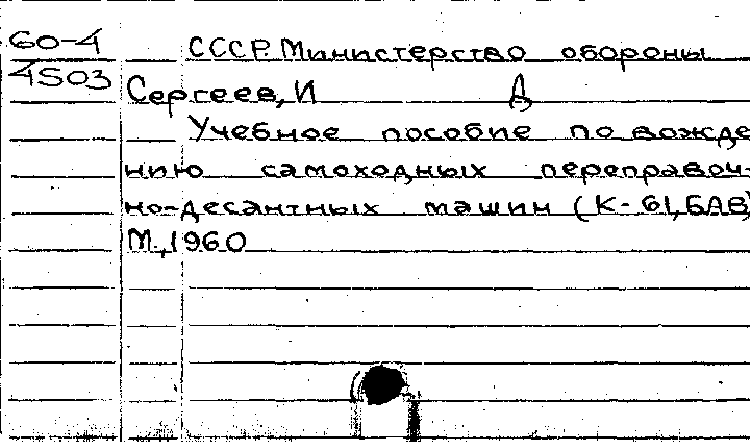 60-4 СССР. Министерство обороны
4503 Сергеев, И Д
Учебное пособие по вожде
нию самоходных переправоч-
но-десантных машин (К-61, БАВ)
М., 1960